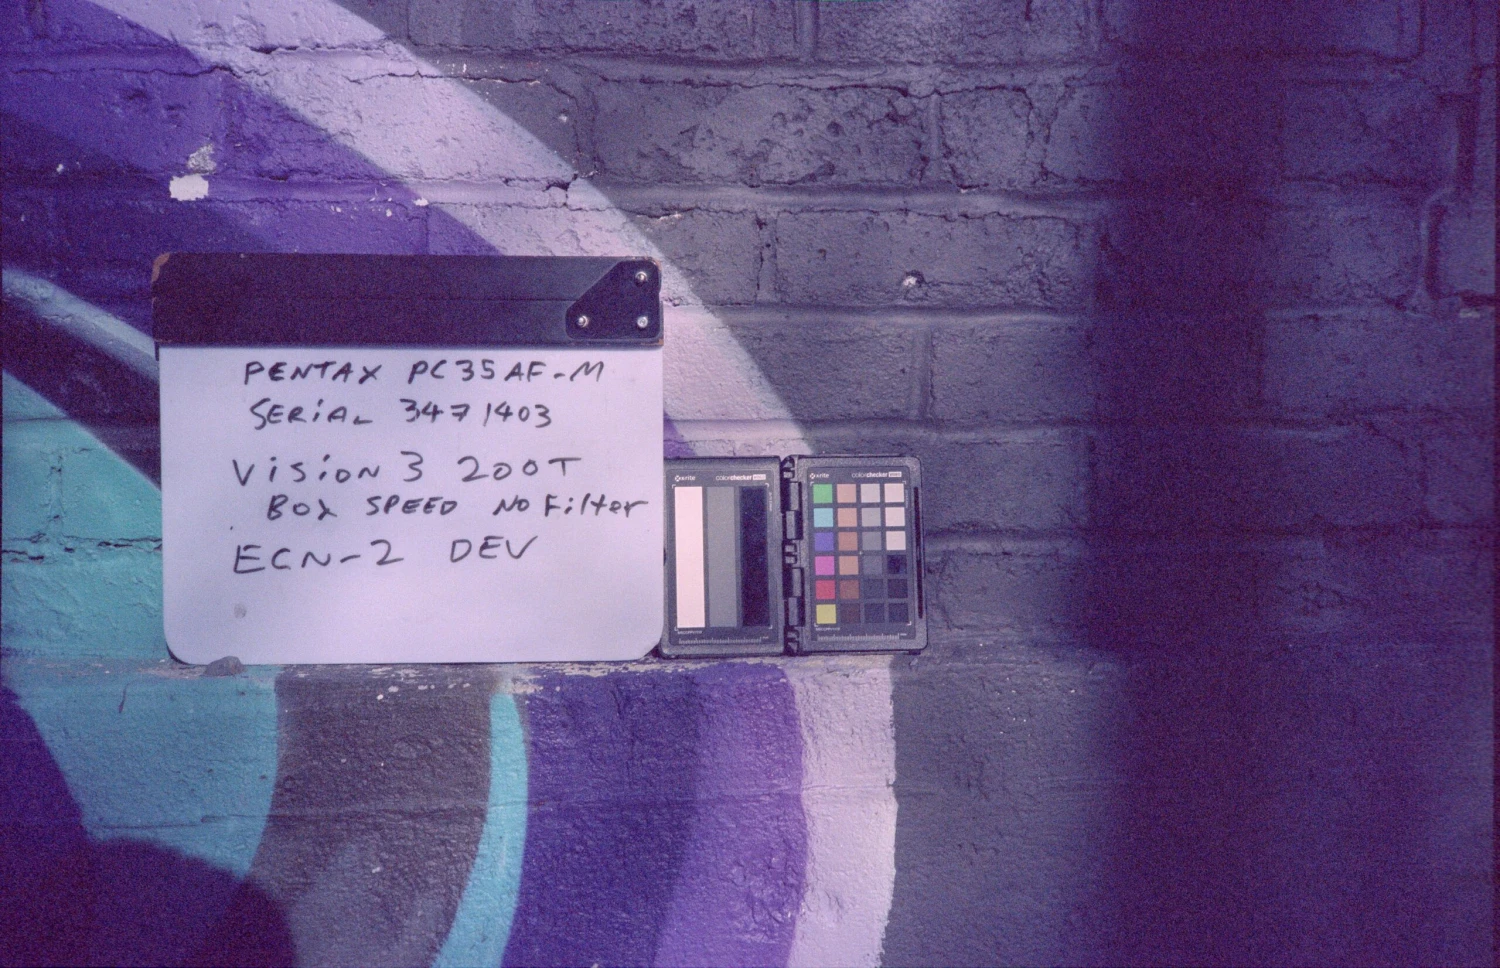 PENTAX PC35AF-M
SERiAL 3471403
Vision 3 200T
BOX SPEED NO Filter
ECN-2 DEV
x-rite colorchecker
x-rite colorchecker